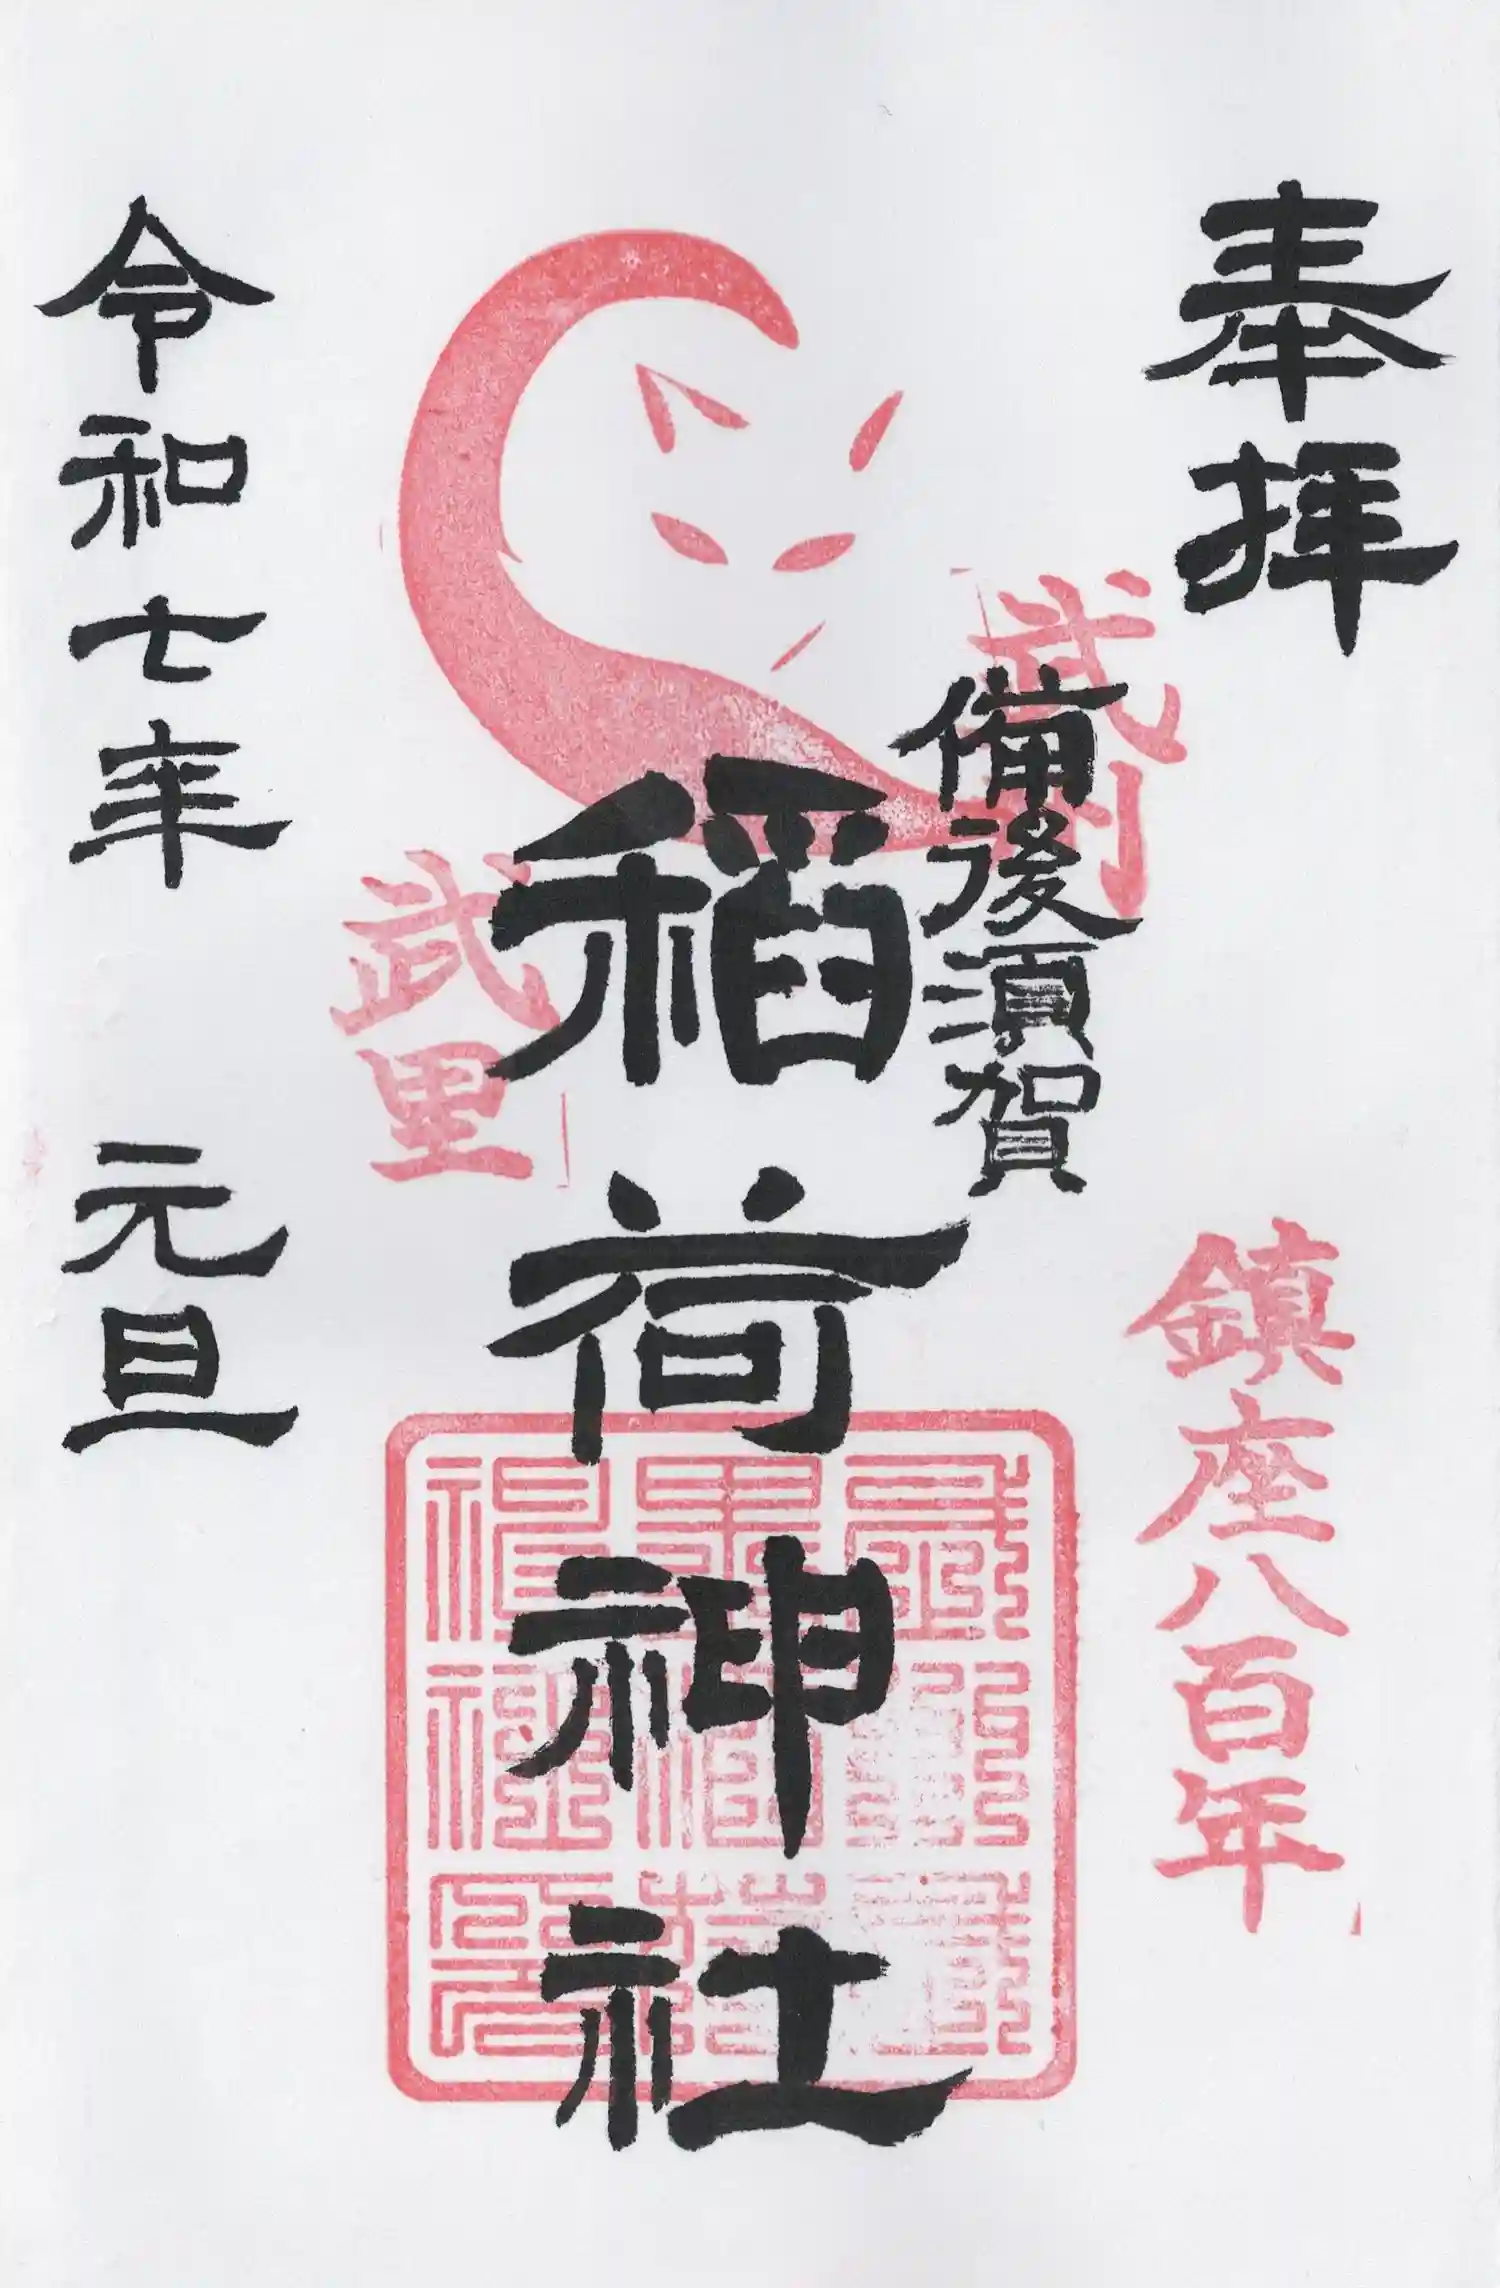 奉拝
鎮座八百年
武州
備後須賀
稲荷神社
武里
令和七年 元旦